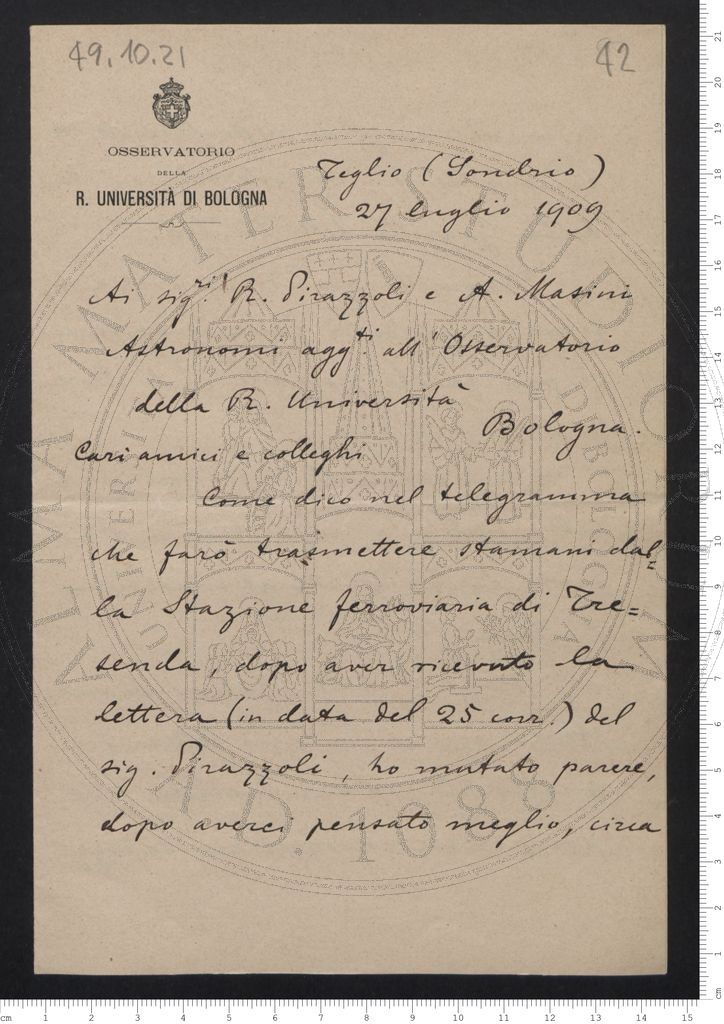 49.10.21
42
OSSERVATORIO
DELLA
R. UNIVERSITÀ DI BOLOGNA
Teglio (Sondrio)
27 luglio 1909
Ai sig.ri R. Pirazzoli e A. Masini
Astronomi agg.ti all'Osservatorio
della R. Università
Bologna.
Cari amici e colleghi
Come dico nel telegramma
che farò trasmettere stamani dal=
la Stazione ferroviaria di Tre=
senda, dopo aver ricevuto la
lettera (in data del 25 corr.) del
sig. Pirazzoli, ho mutato parere,
dopo averci pensato meglio, circa
ALMA MATER STUDIORUM
A.D. 1088